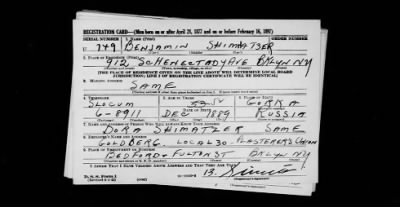 REGISTRATION CARD—(Men born on or after April 28, 1877 and on or before February 16, 1897)
SERIAL NUMBER 1. NAME (Print) ORDER NUMBER
U 749 BENJAMIN SHIMATZER
2. PLACE OF RESIDENCE (Print)
912 SCHENECTADY AVE BKLYN NY
[THE PLACE OF RESIDENCE GIVEN ON THE LINE ABOVE WILL DETERMINE LOCAL BOARD
JURISDICTION; LINE 2 OF REGISTRATION CERTIFICATE WILL BE IDENTICAL]
3. MAILING ADDRESS
SAME
4. TELEPHONE 5. AGE IN YEARS 6. PLACE OF BIRTH
SLOCUM GORKA
6-8911 DEC 1889 RUSSIA
7. NAME AND ADDRESS OF PERSON WHO WILL ALWAYS KNOW YOUR ADDRESS
DORA SHIMATZER SAME
8. EMPLOYER'S NAME AND ADDRESS
GOLDBERG LOCAL 30 PLASTERERS UNION
9. PLACE OF EMPLOYMENT OR BUSINESS
BEDFORD + FULTON ST BKLYN NY
I AFFIRM THAT I HAVE VERIFIED ABOVE ANSWERS AND THAT THEY ARE TRUE.
D. S. S. Form 1
B.